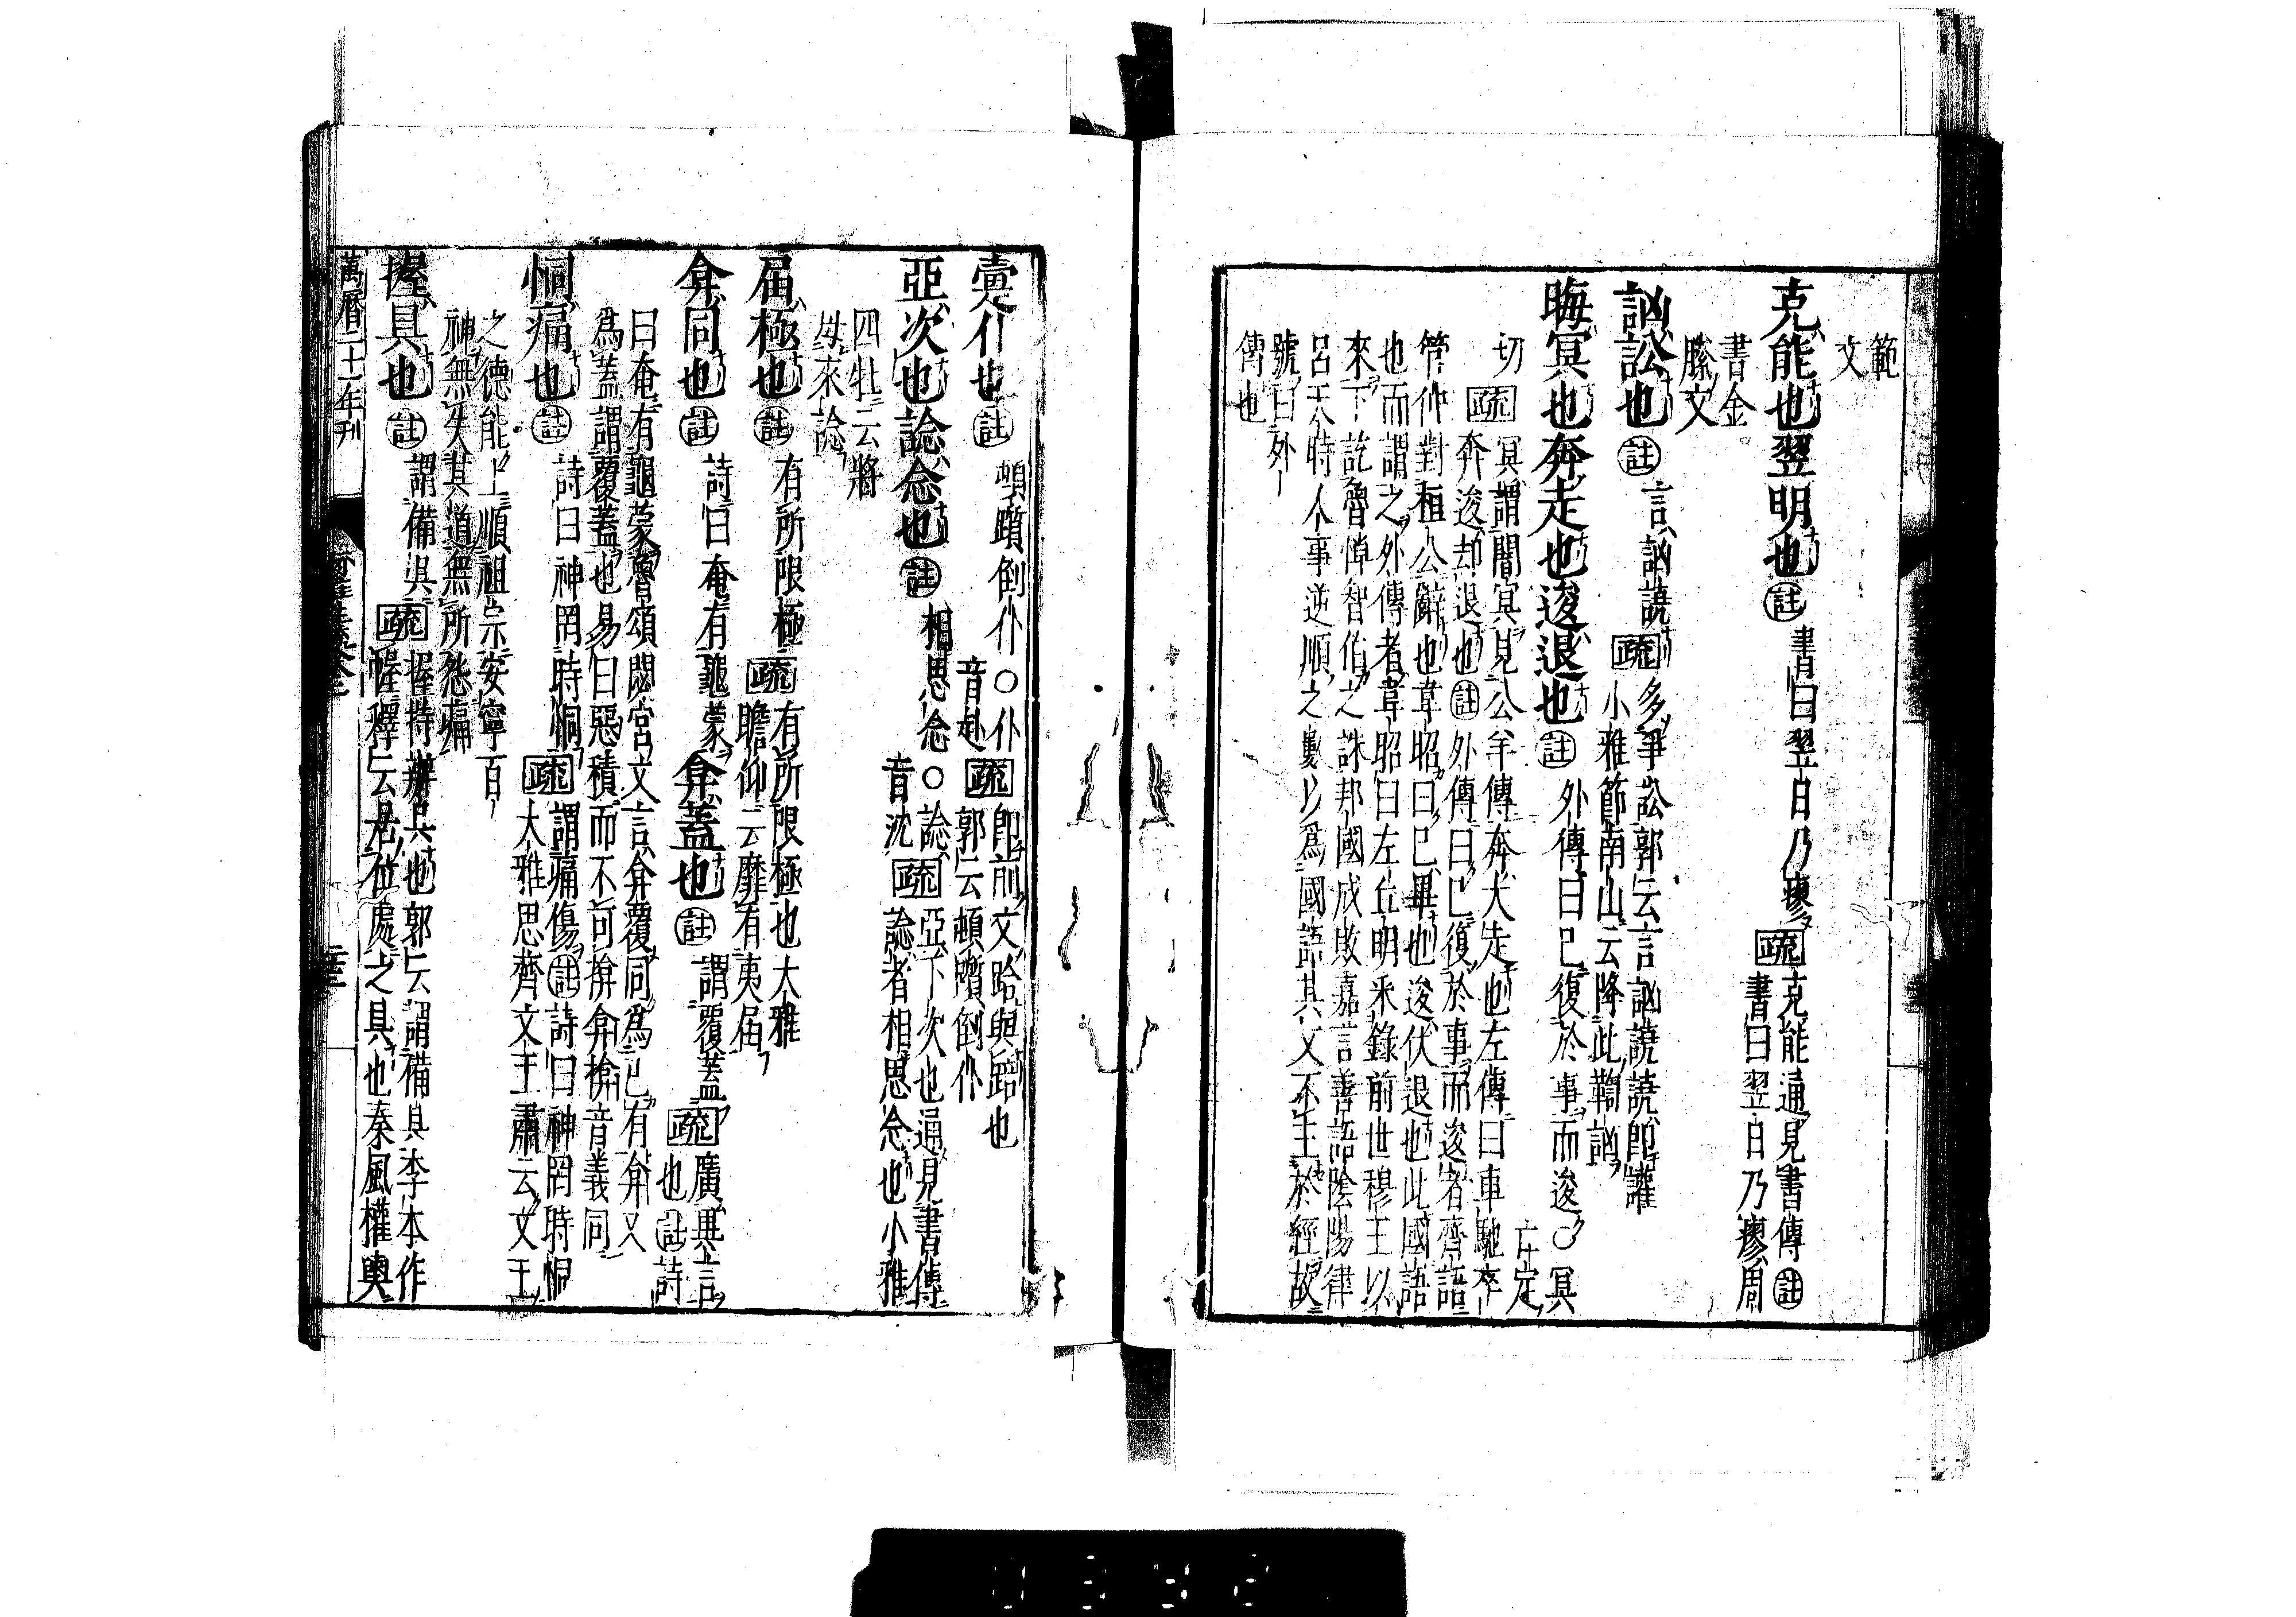 範
文
克能也翌明也註書曰翌日乃瘳疏克能通見書傳註
書曰翌日乃瘳周
書金
縢文
訩訟也註言訩譊疏多爭訟郭云言訩譊譊卽讙
小雅節南山云降此鞫訩
晦冥也奔走也逡退也註外傳曰已復於事而逡○冥
亡定
切疏冥謂闇冥見公羊傳奔大走也左傳曰車馳卒
奔逡却退也註外傳曰已復於事而逡者齊語
管仲對桓公辭也韋昭曰已畢也逡伏退也此國語
也而謂之外傳者韋昭曰左丘明采錄前世穆王以
來下訖魯悼智伯之誅邦國成敗嘉言善語陰陽律
呂天時人事逆順之數以爲國語其文不主於經故
號曰外
傳也
疐仆也註頓躓倒仆○仆
音赴疏卽前文跲與躓也
郭云頓躓倒仆
亞次也諗念也註相思念○諗
音沈疏亞下次也通見書傳
諗者相思念也小雅
四牡云將
母來諗
届極也註有所限極疏有所限極也大雅
瞻仰云靡有夷届
弇同也註詩曰奄有龜蒙弇蓋也註謂覆蓋疏廣異言
也註詩
曰奄有龜蒙魯頌閟宮文言弇覆同爲已有弇又
為蓋謂覆蓋也易曰惡積而不可揜弇揜音義同
恫痛也註詩曰神罔時恫疏謂痛傷註詩曰神罔時恫
大雅思齊文王肅云文王
之德能上順祖宗安寧百
神無失其道無所怨痛
握具也註謂備具疏握持辦具也郭云謂備具李本作
幄釋云居位處之具也秦風權輿
萬曆二十一年刊